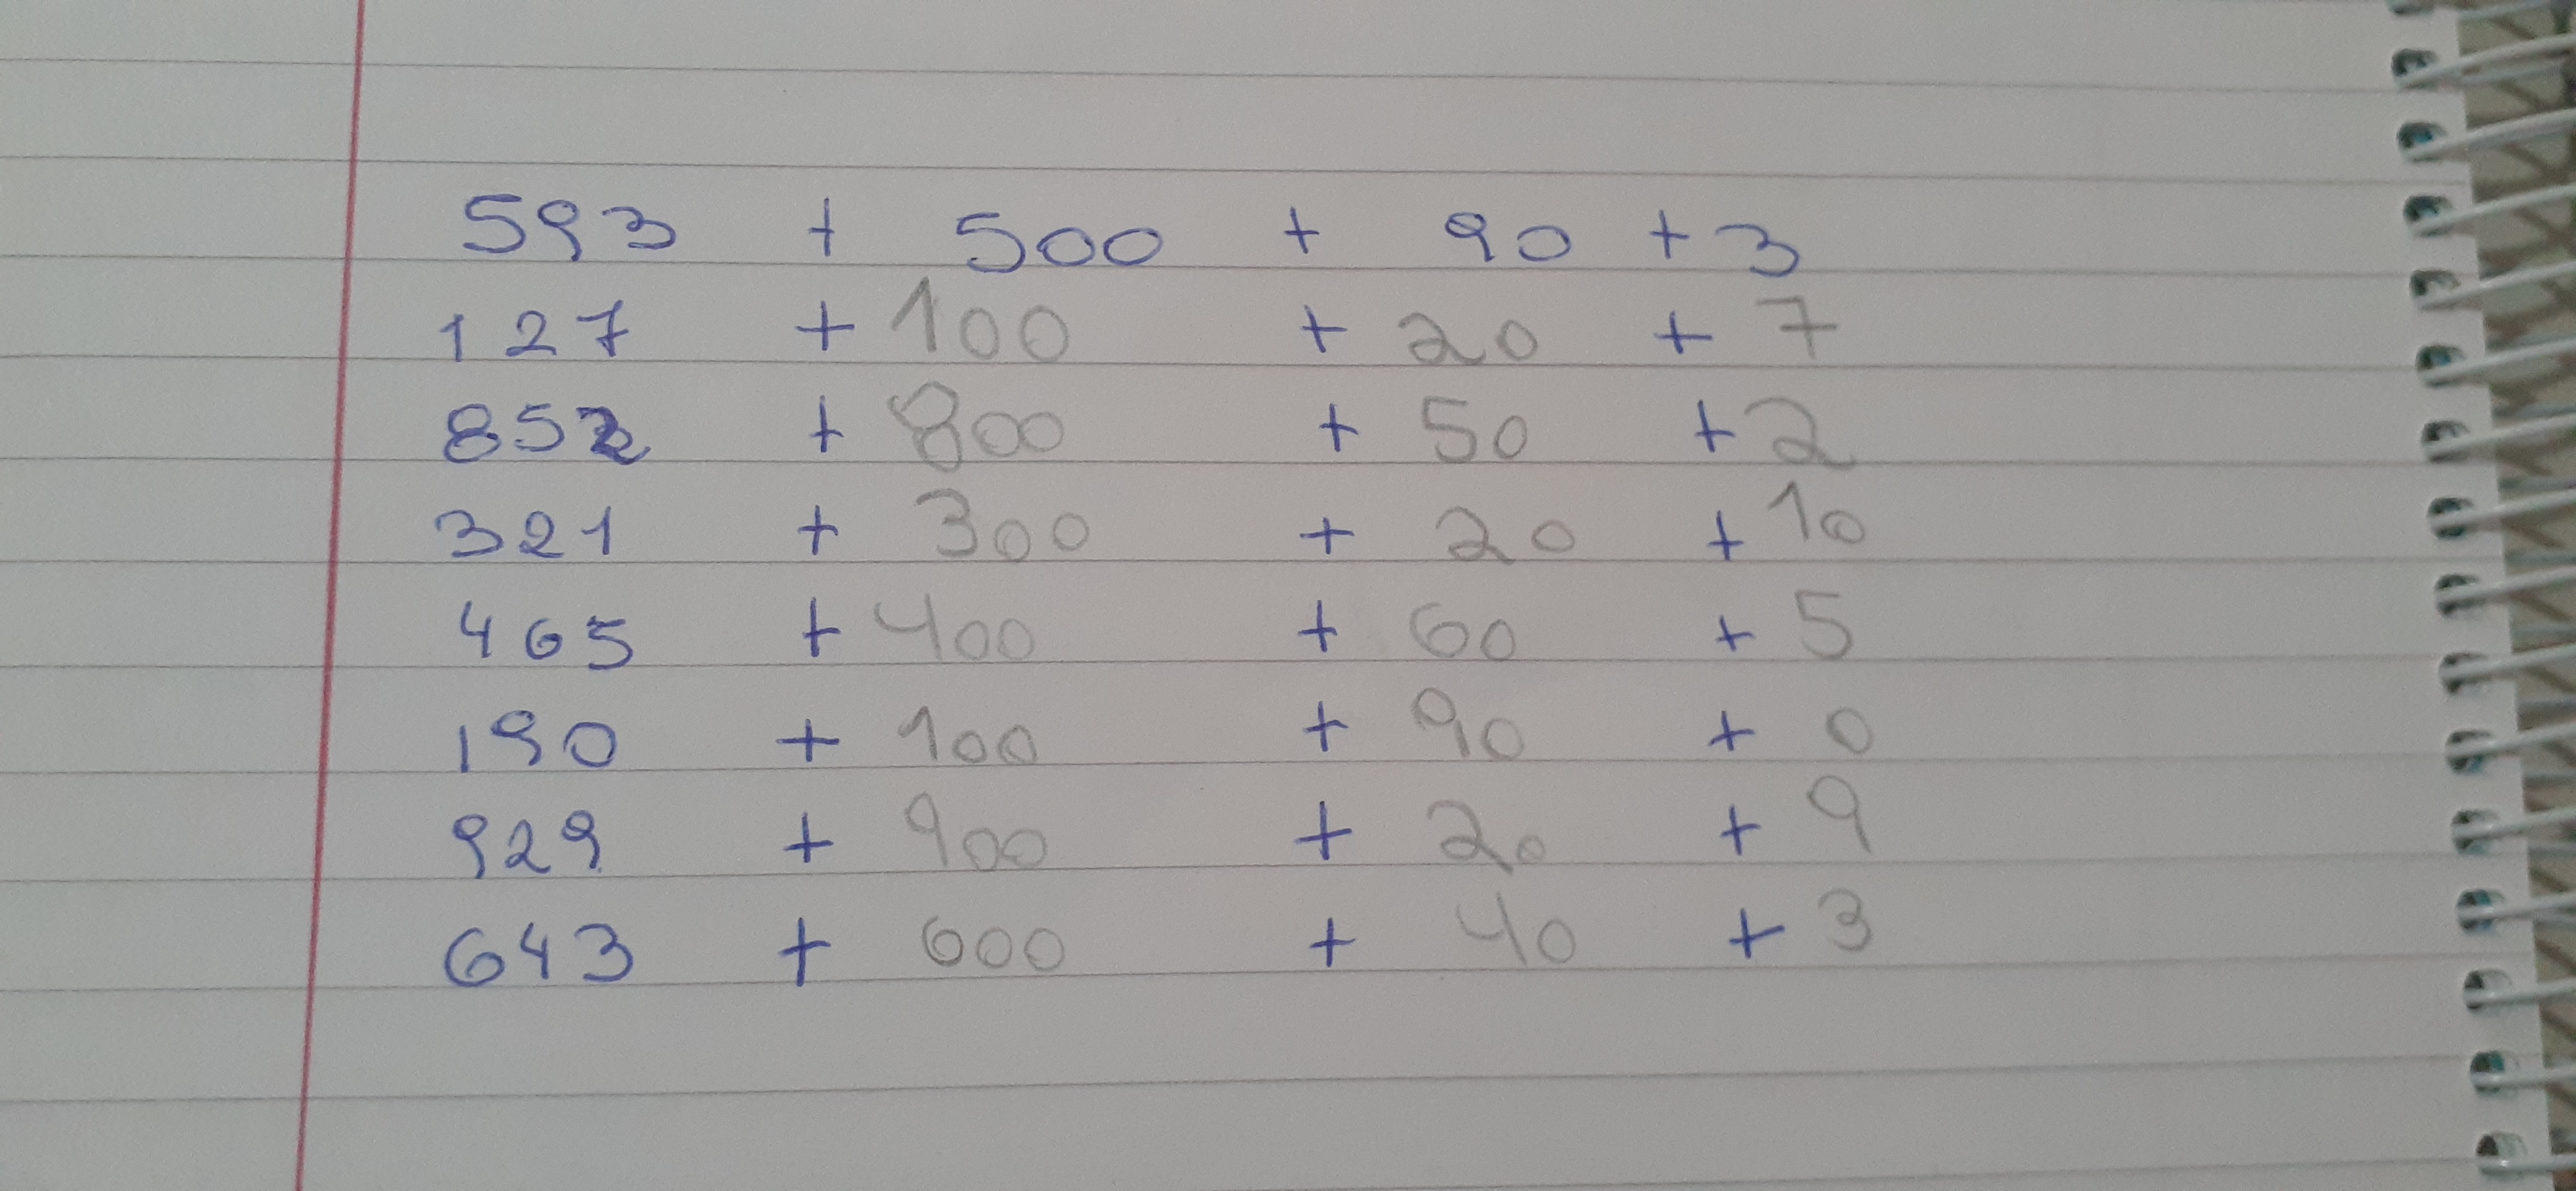 593 + 500 + 90 + 3
127 + 100 + 20 + 7
852 + 800 + 50 + 2
321 + 300 + 20 + 10
465 + 400 + 60 + 5
190 + 100 + 90 + 0
929 + 900 + 20 + 9
643 + 600 + 40 + 3